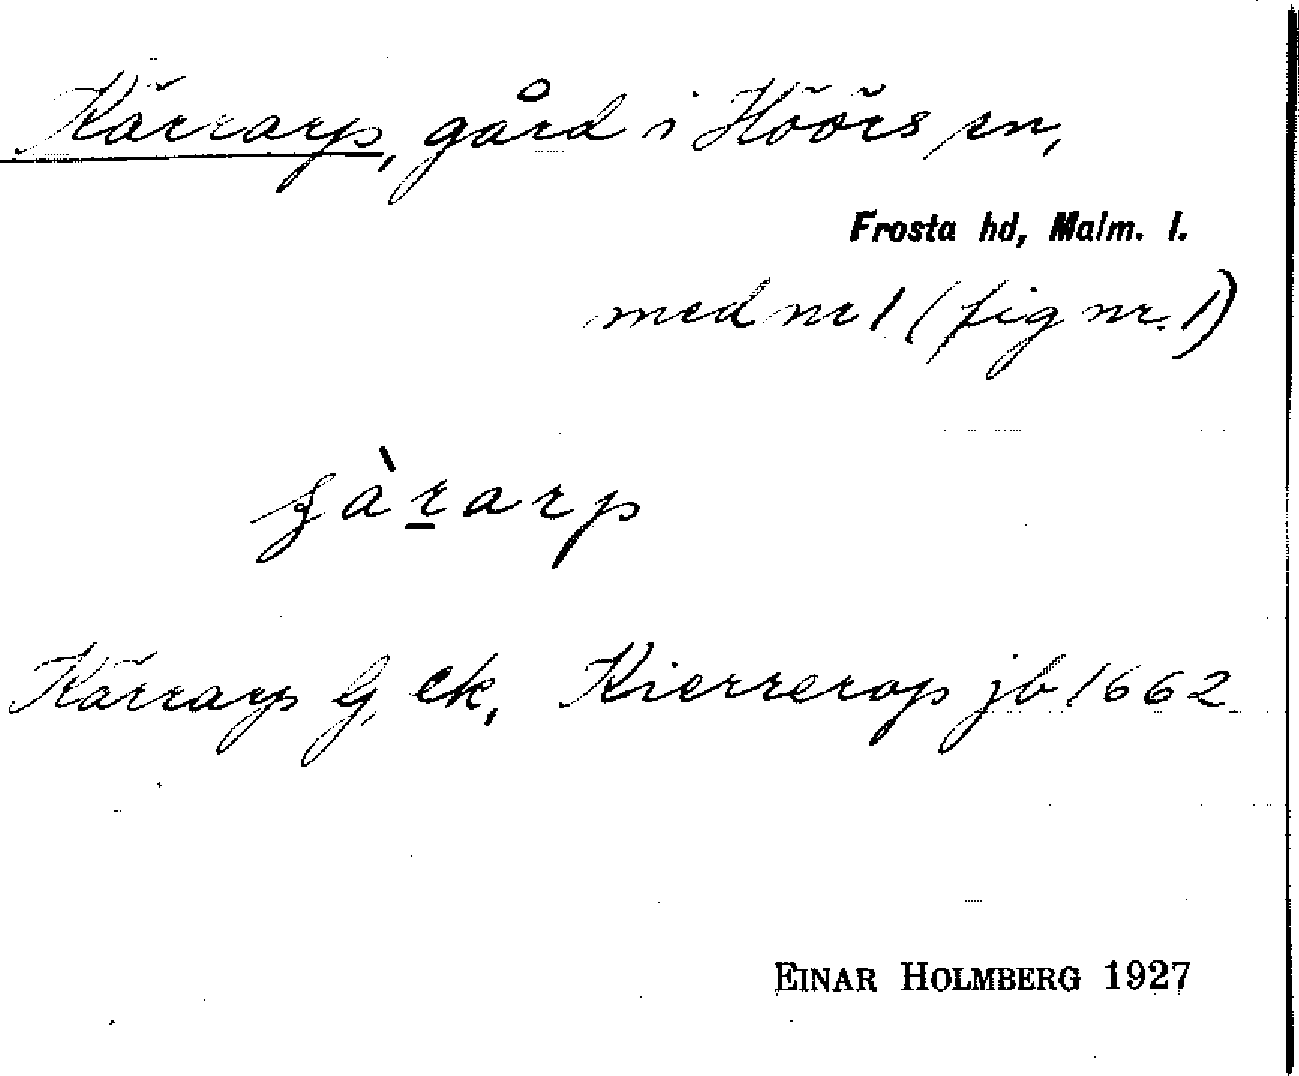 Kärrarp, gård i Höörs sn,
Frosta hd, Malm. l.
med nr 1 (fig nr. 1)
Kärrarp G, ek, Kierrerop jb 1662
EINAR HOLMBERG 1927